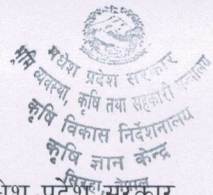 मधेश प्रदेश सरकार
भूमि व्यवस्था, कृषि तथा सहकारी मन्त्रालय
कृषि विकास निर्देशनालय
कृषि ज्ञान केन्द्र
सिरहा, नेपाल
प्रदेश सरकार